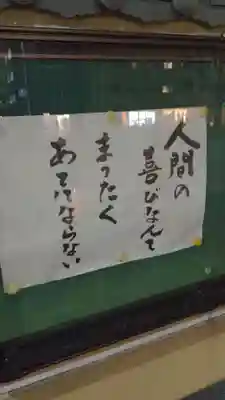 人間の
喜びなんて
まったく
あてにならない